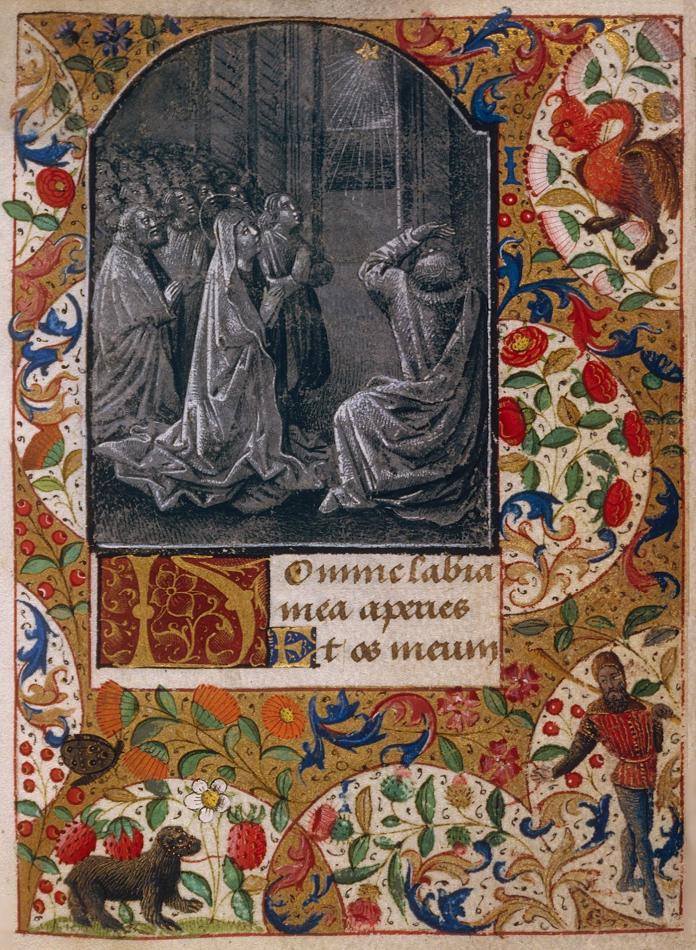 DOmine labia
mea aperies
Et os meum